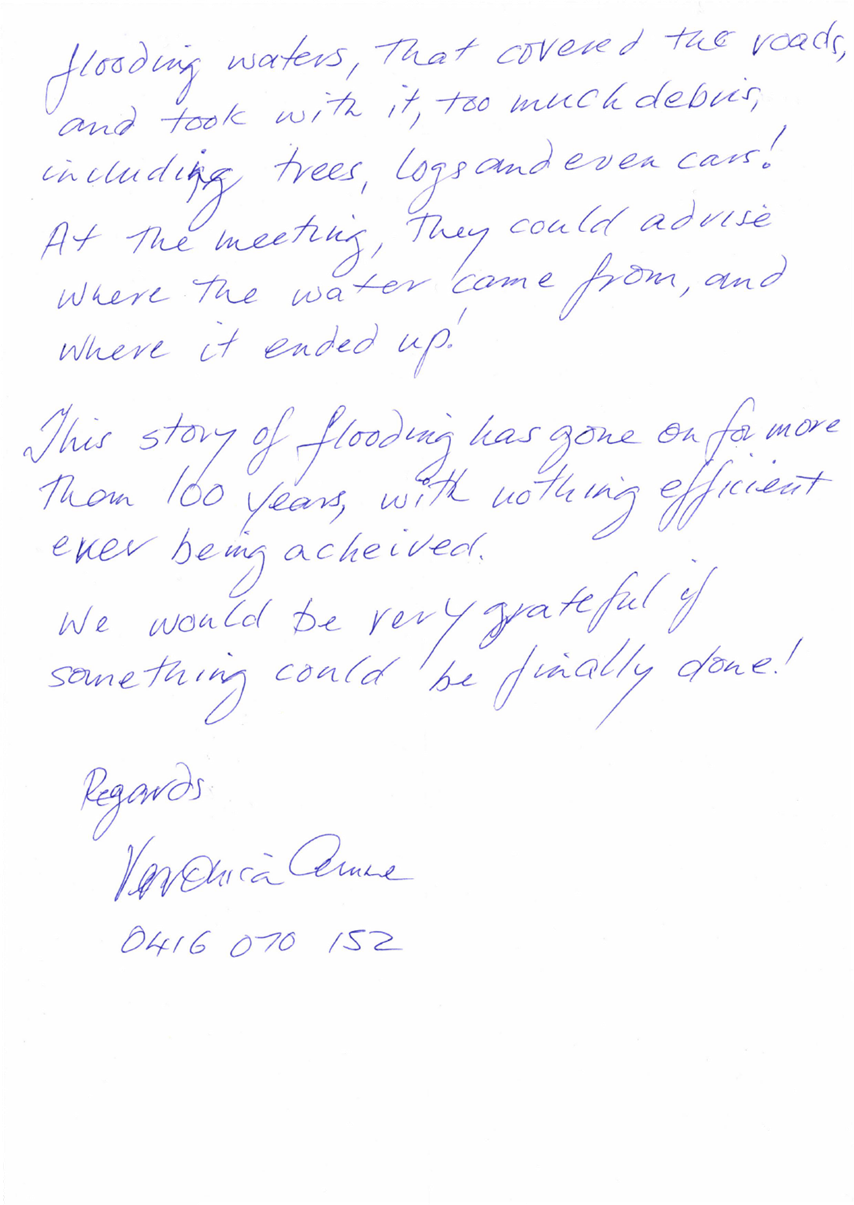 flooding waters, That covered the roads,
and took with it, too much debris,
including trees, logs and even cars!
At the meeting, they could advise
where the water came from, and
where it ended up!
This story of flooding has gone on for more
than 100 years, with nothing efficient
ever being acheived.
We would be very grateful if
something could be finally done!
Regards
Veronica
0416 070 152